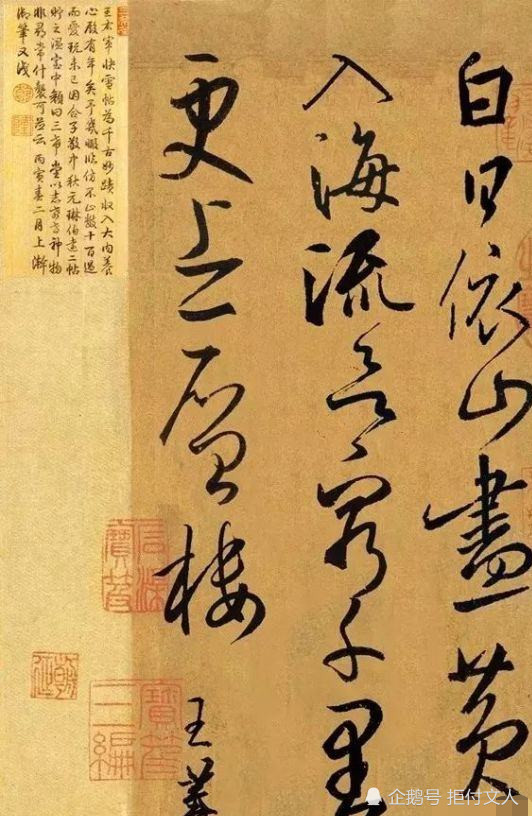 白日依山盡黃
入海流欲窮千里
更上一層樓
王羲
王右軍快雪帖為千古妙蹟收入大內養
心殿有年矣予幾暇臨仿不止數十百過
而愛玩未已因合子敬中秋元琳伯遠二帖
貯之溫室中顏曰三希堂以志希世神物
非尋常什襲可並云丙寅春二月上澣
御筆又識
寶笈
三編
企鹅号 拒付文人